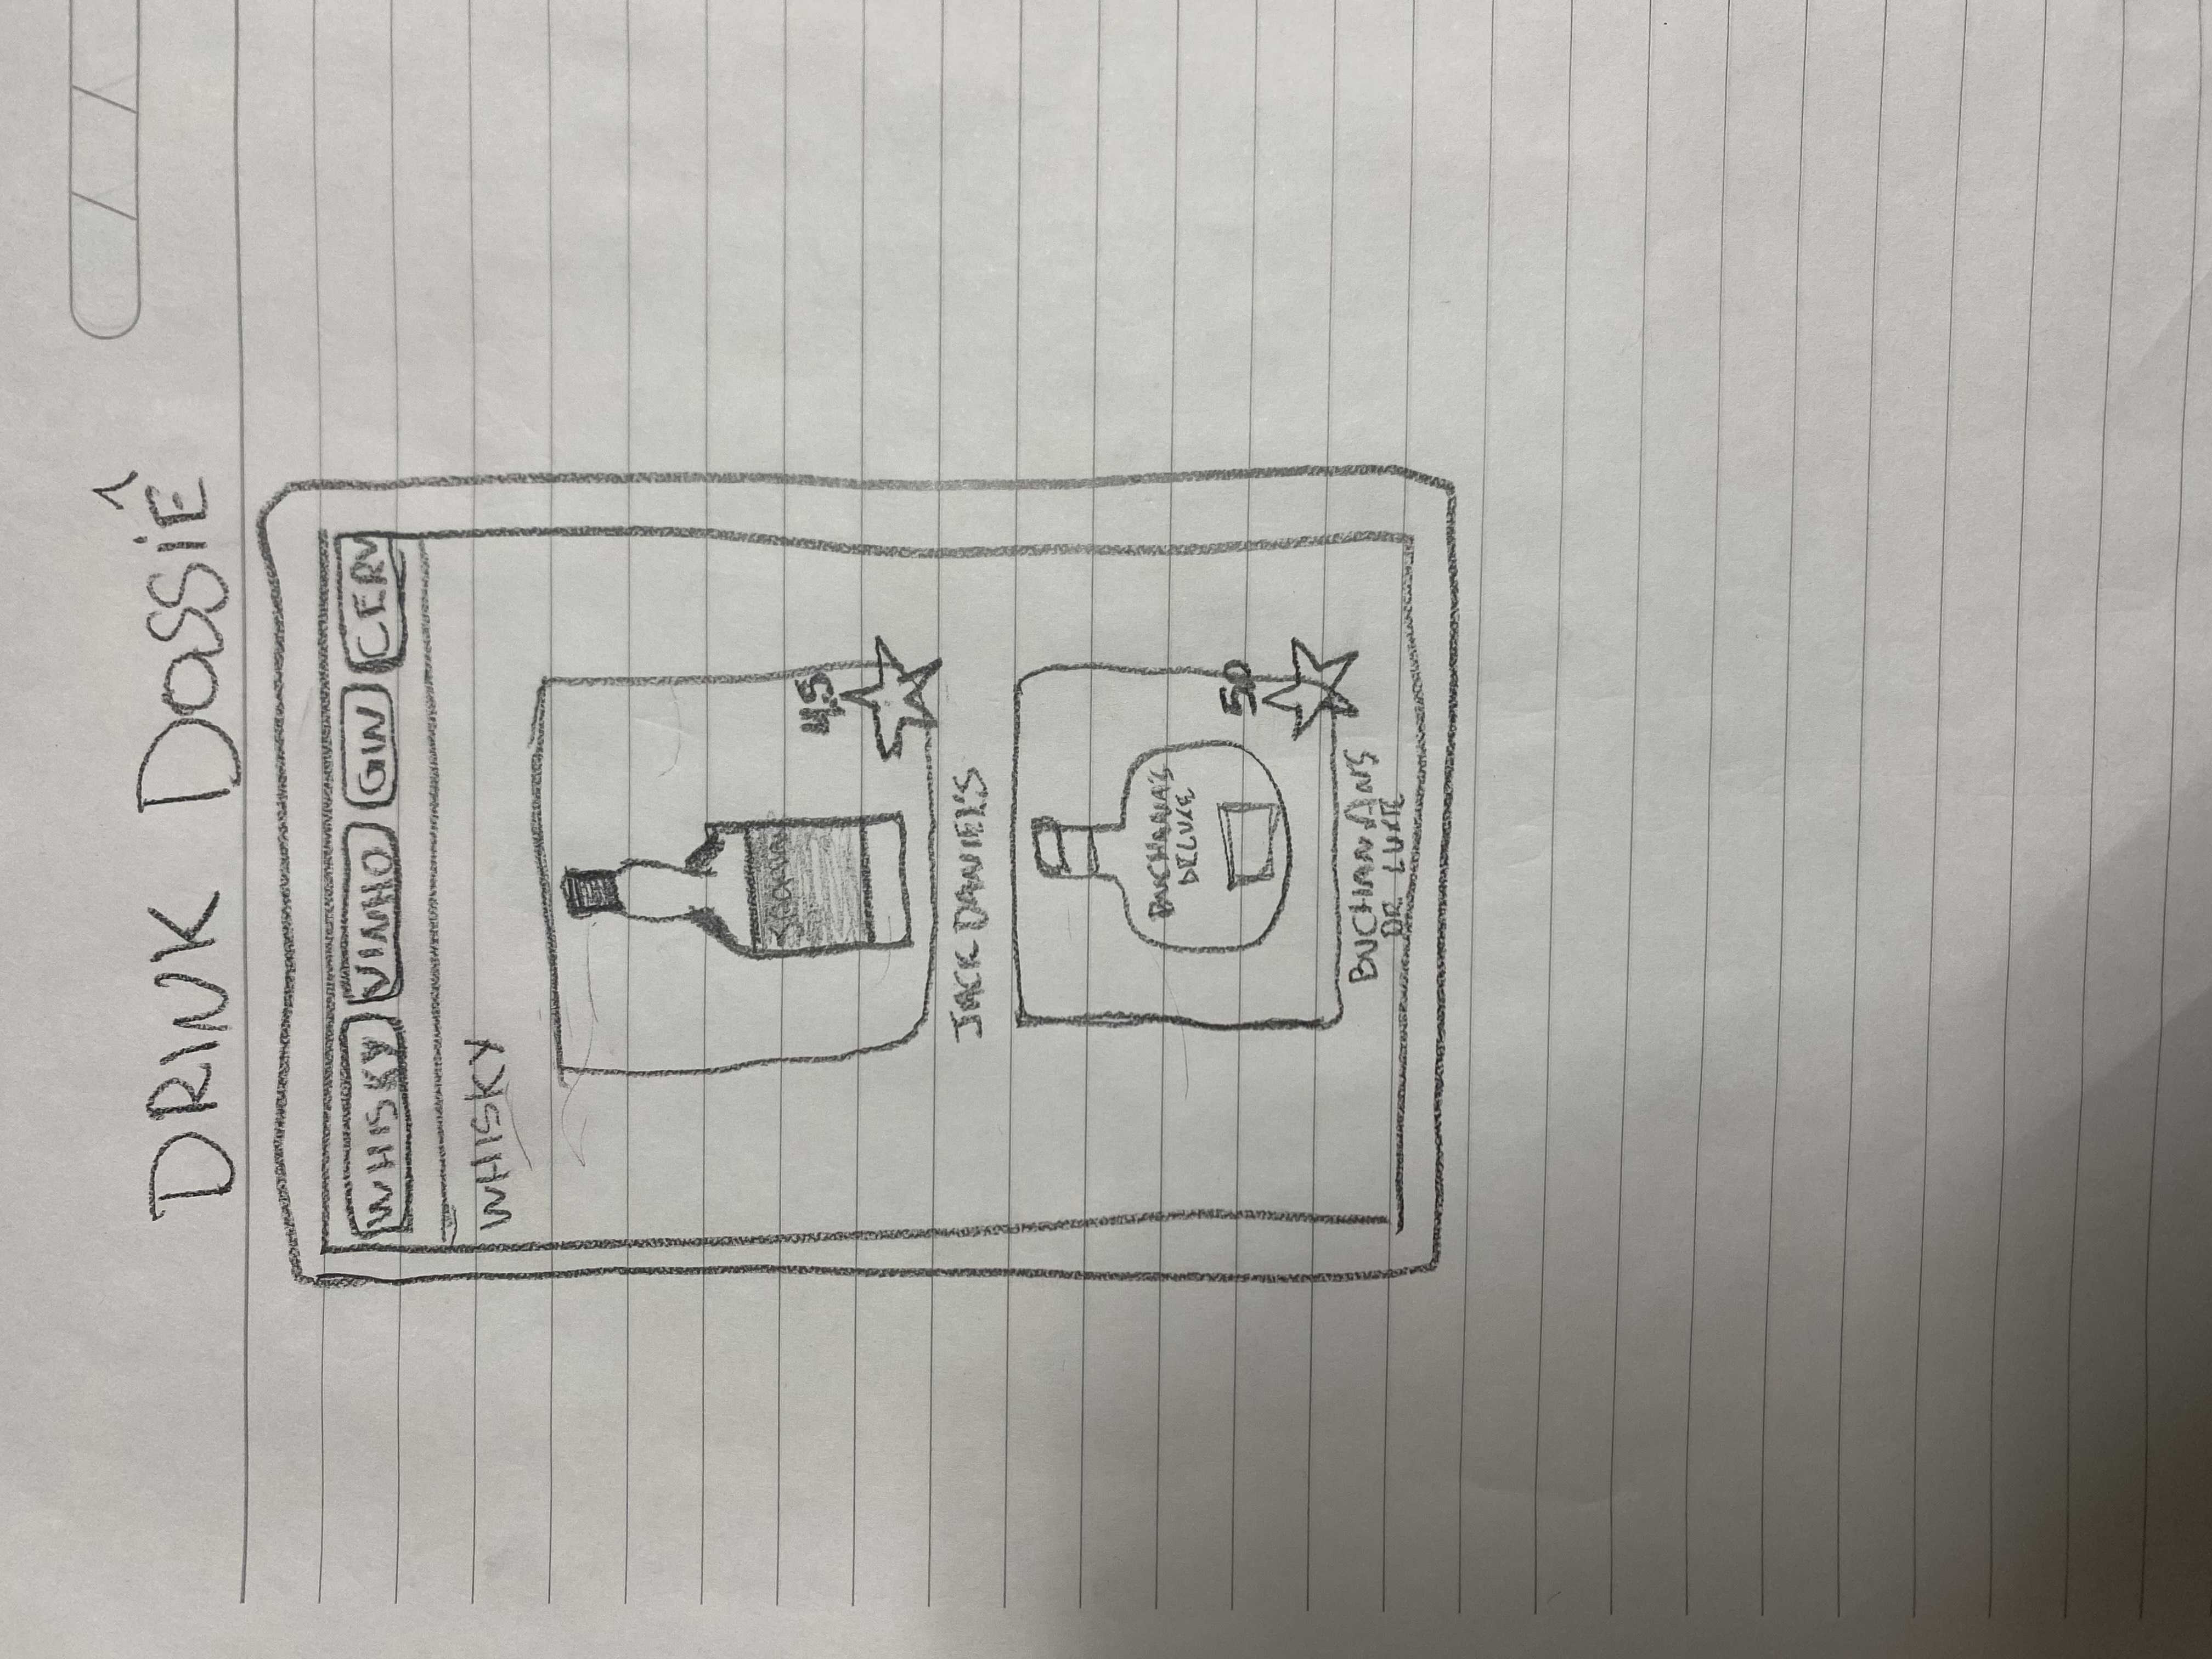 DRINK DOSSIÊ
WHISKY VINHO GIN CERV
WHISKY
4.5
JACK DANIEL'S
BUCHANA'S
DELUXE
5.0
BUCHANANS
DE LUXE